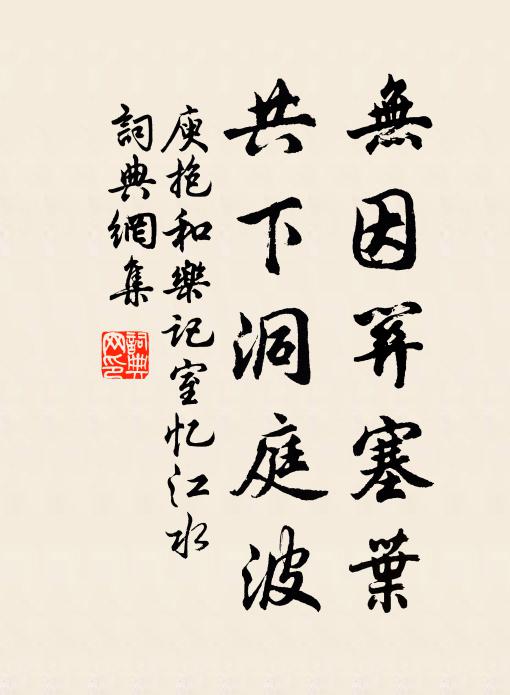 無因關塞葉
共下洞庭波
庾抱和樂記室忆江水
詞典網集
詞典网印